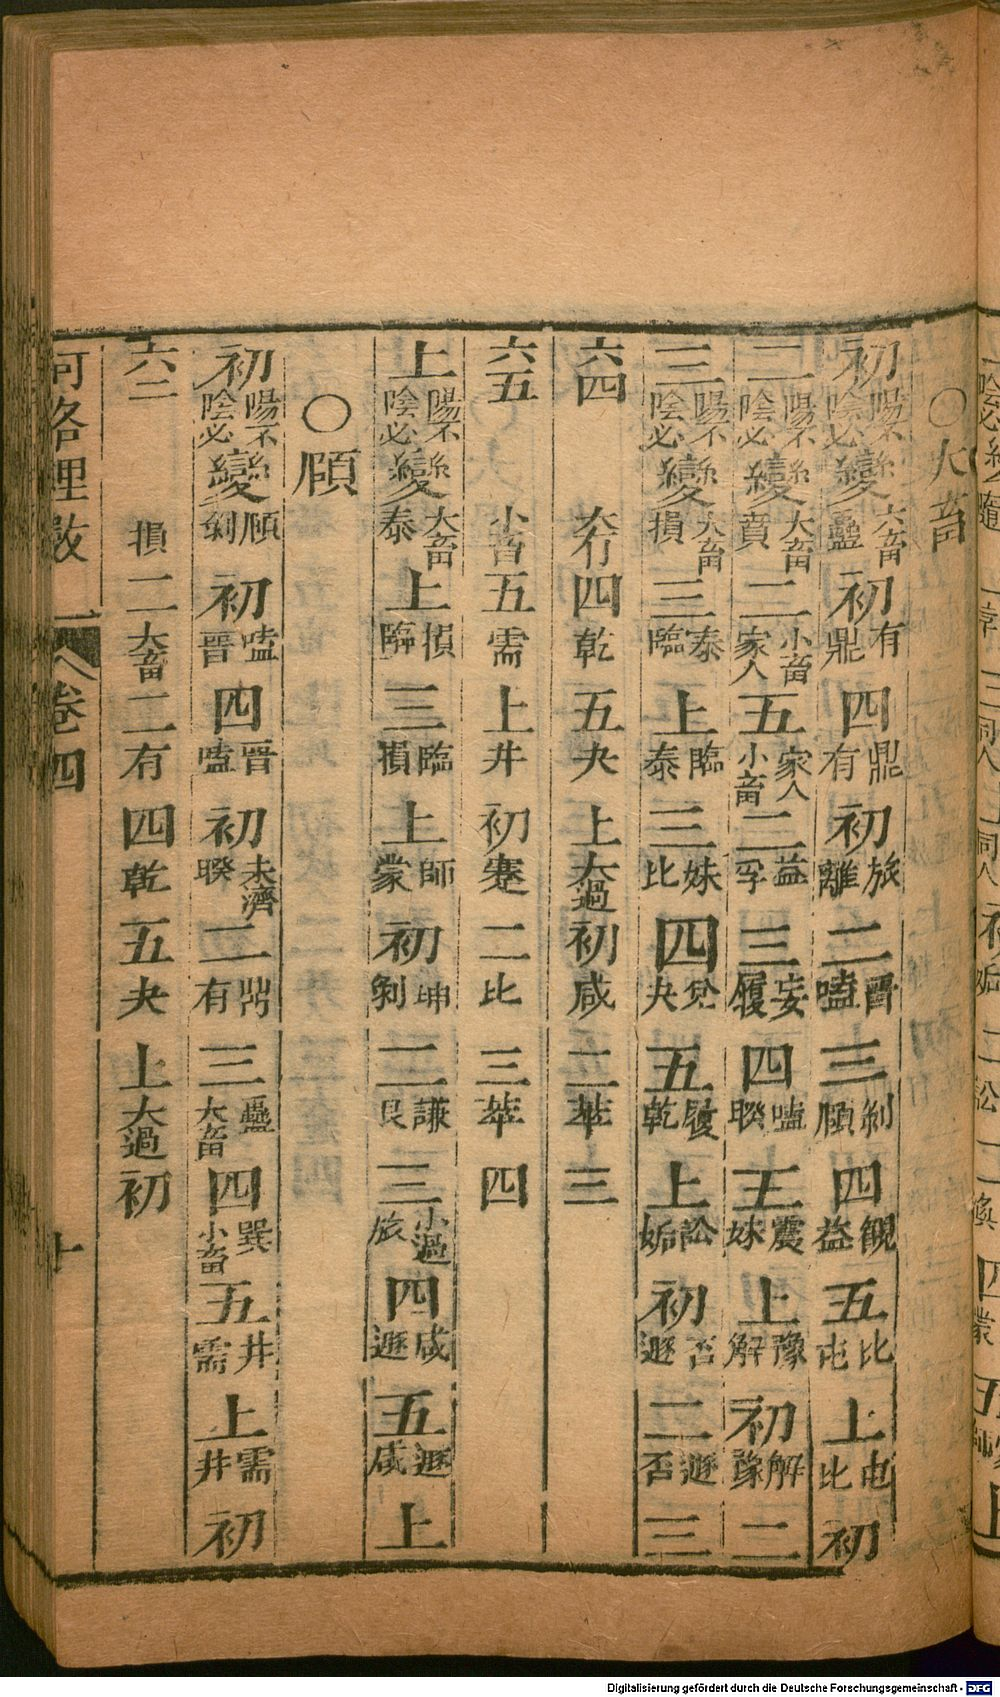 ○大畜
初陽不陰必變大畜蠱初有鼎四鼎有初旅離二晋嗑三剝頤四觀益五比屯上屯比初
二陽不陰必變大畜賁二小畜家人五家人小畜二益孚三妄履四嗑睽五震妹上豫解初解豫二
三陽不陰必變大畜損三泰臨上臨泰三妹比四兌夬五履乾上訟姤初否遯二遯否三
六四大有四乾五夬上大過初咸二萃三
六五小畜五需上井初蹇二比三萃四
上陽不陰必變大畜泰上損臨三臨損上師蒙初坤剝二謙艮三小過旅四咸遯五遯咸上
○頤
初陽不陰必變頤剝初嗑晋四晋嗑初未濟睽二鼎有三蠱大畜四巽小畜五井需上需井初
六二損二大畜二有四乾五夬上大過初
河洛理数 卷四 十
Digitalisierung gefördert durch die Deutsche Forschungsgemeinschaft - DFG